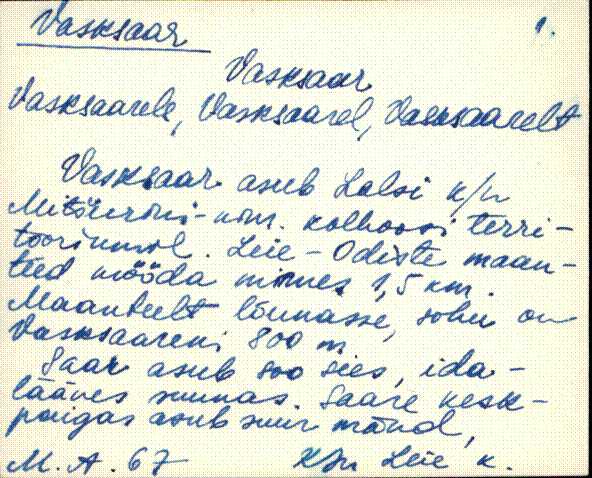 Vasksaar 1.
Vasksaar
Vasksaarele, Vasksaarel, Vasksaarelt
Vasksaar asub Lalsi k/n
Mitšurini-nim. kolhoosi terri-
tooriumil. Leie-Odiste maan-
teed mööda minnes 1,5 km.
Maanteelt lõunasse, sohu on
Vasksaareni 800 m
Saar asub soo sees, ida-
lääves suunas. Saare kesk-
paigas asub suur mänd,
M. A. 67 Leie k.